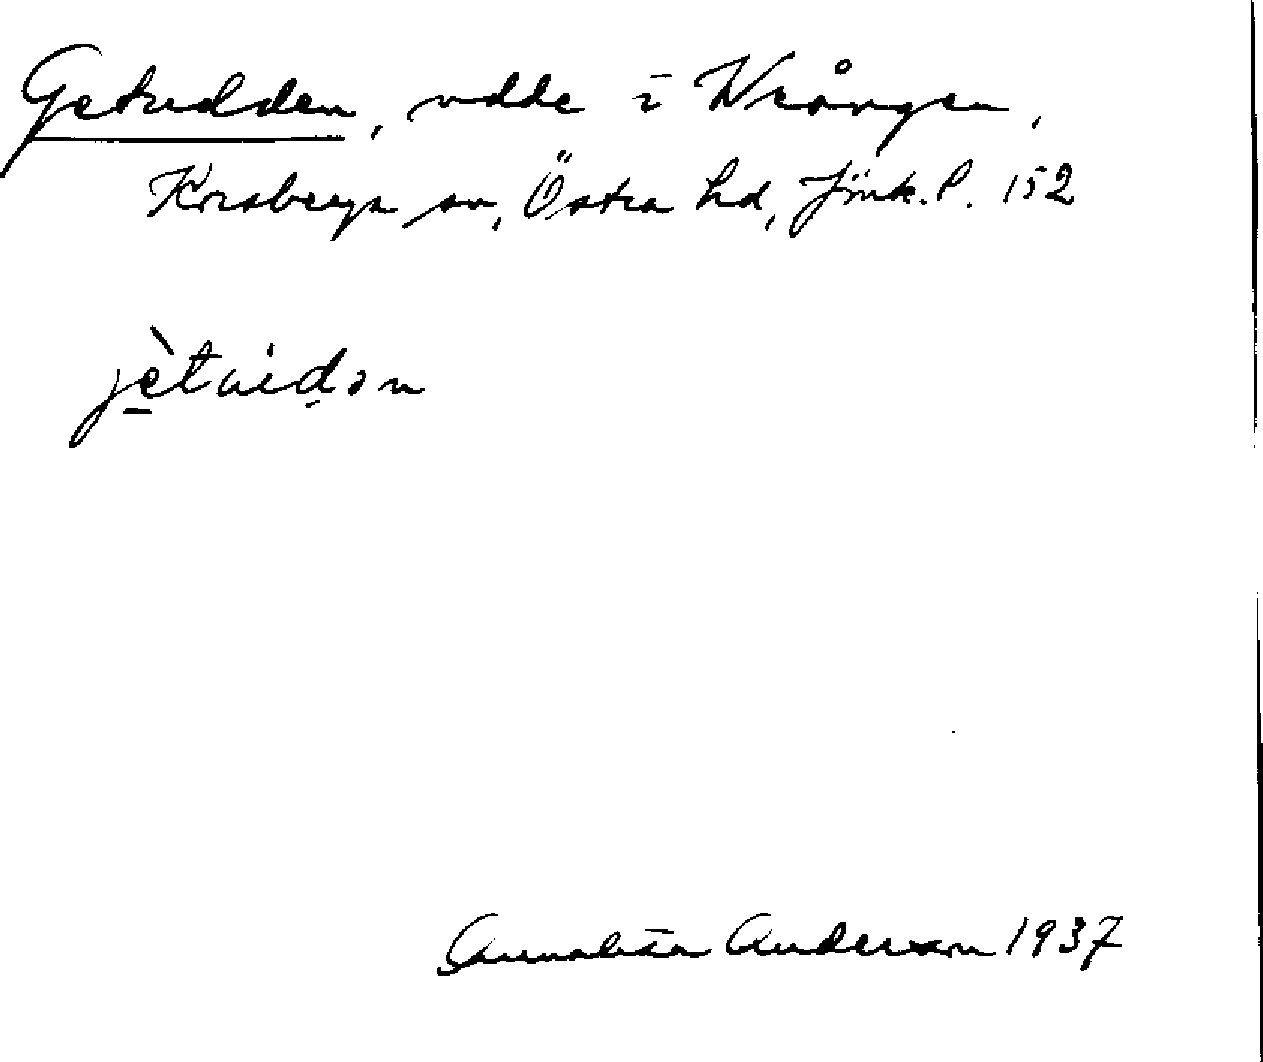 Getudden, udde i Wrången,
Korsberga sn, Östra hd, Jönk. l. 152
jètuidən
Annalisa Anderson 1937